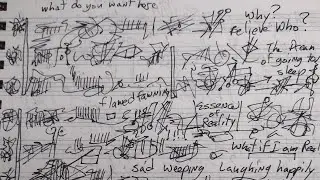 what do you want here
Why?
Believe Who?
The Dream
of going to
sleep
flamed fawning
Essence
of
Reality
What if I am Real
sad weeping Laughing happily